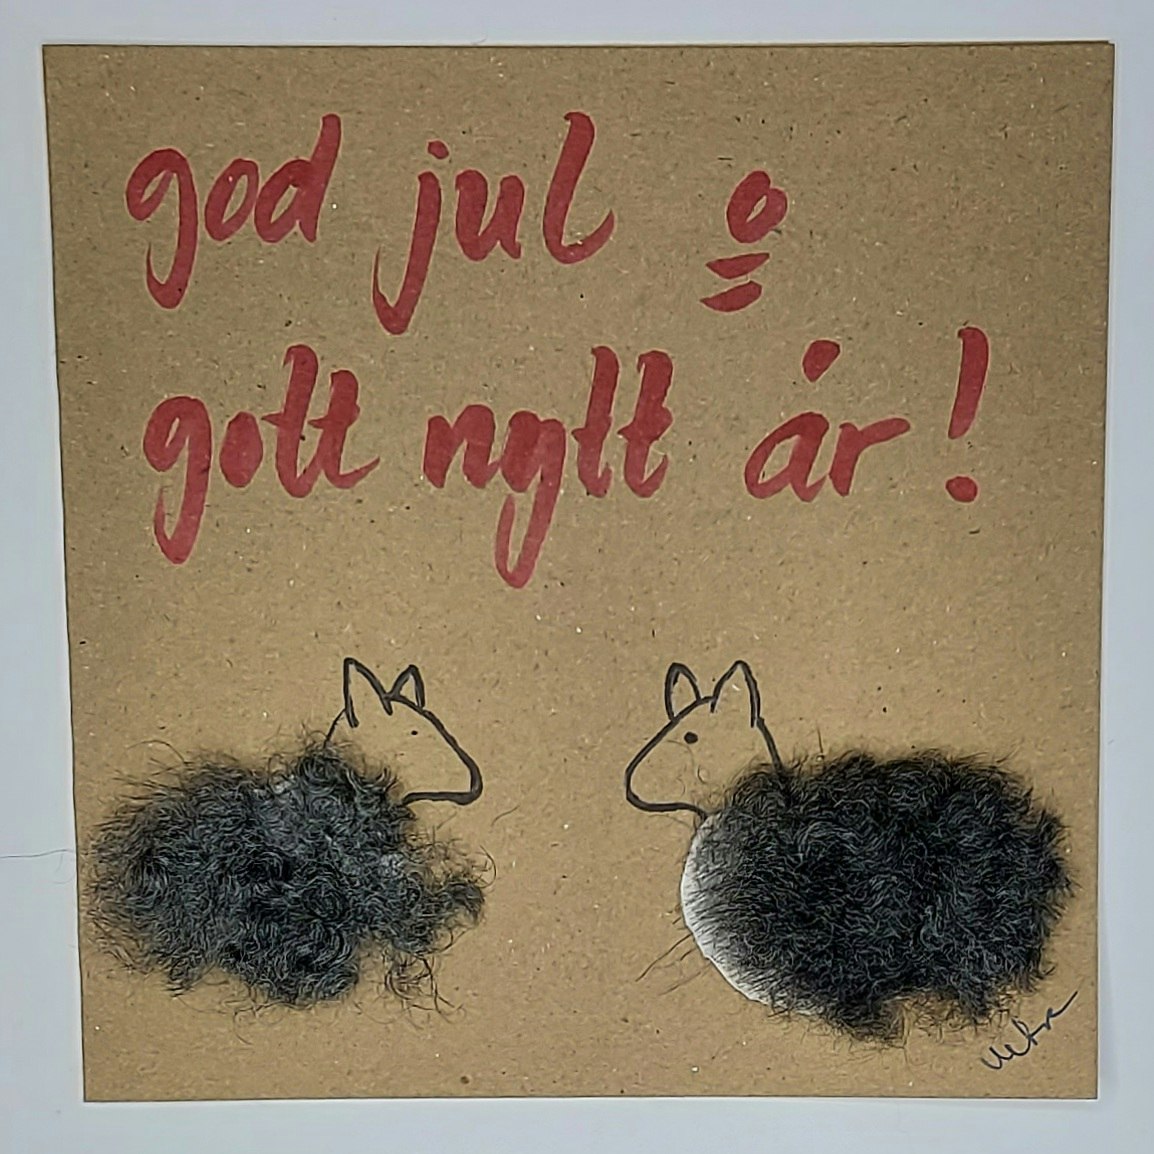 god jul o
gott nytt år!